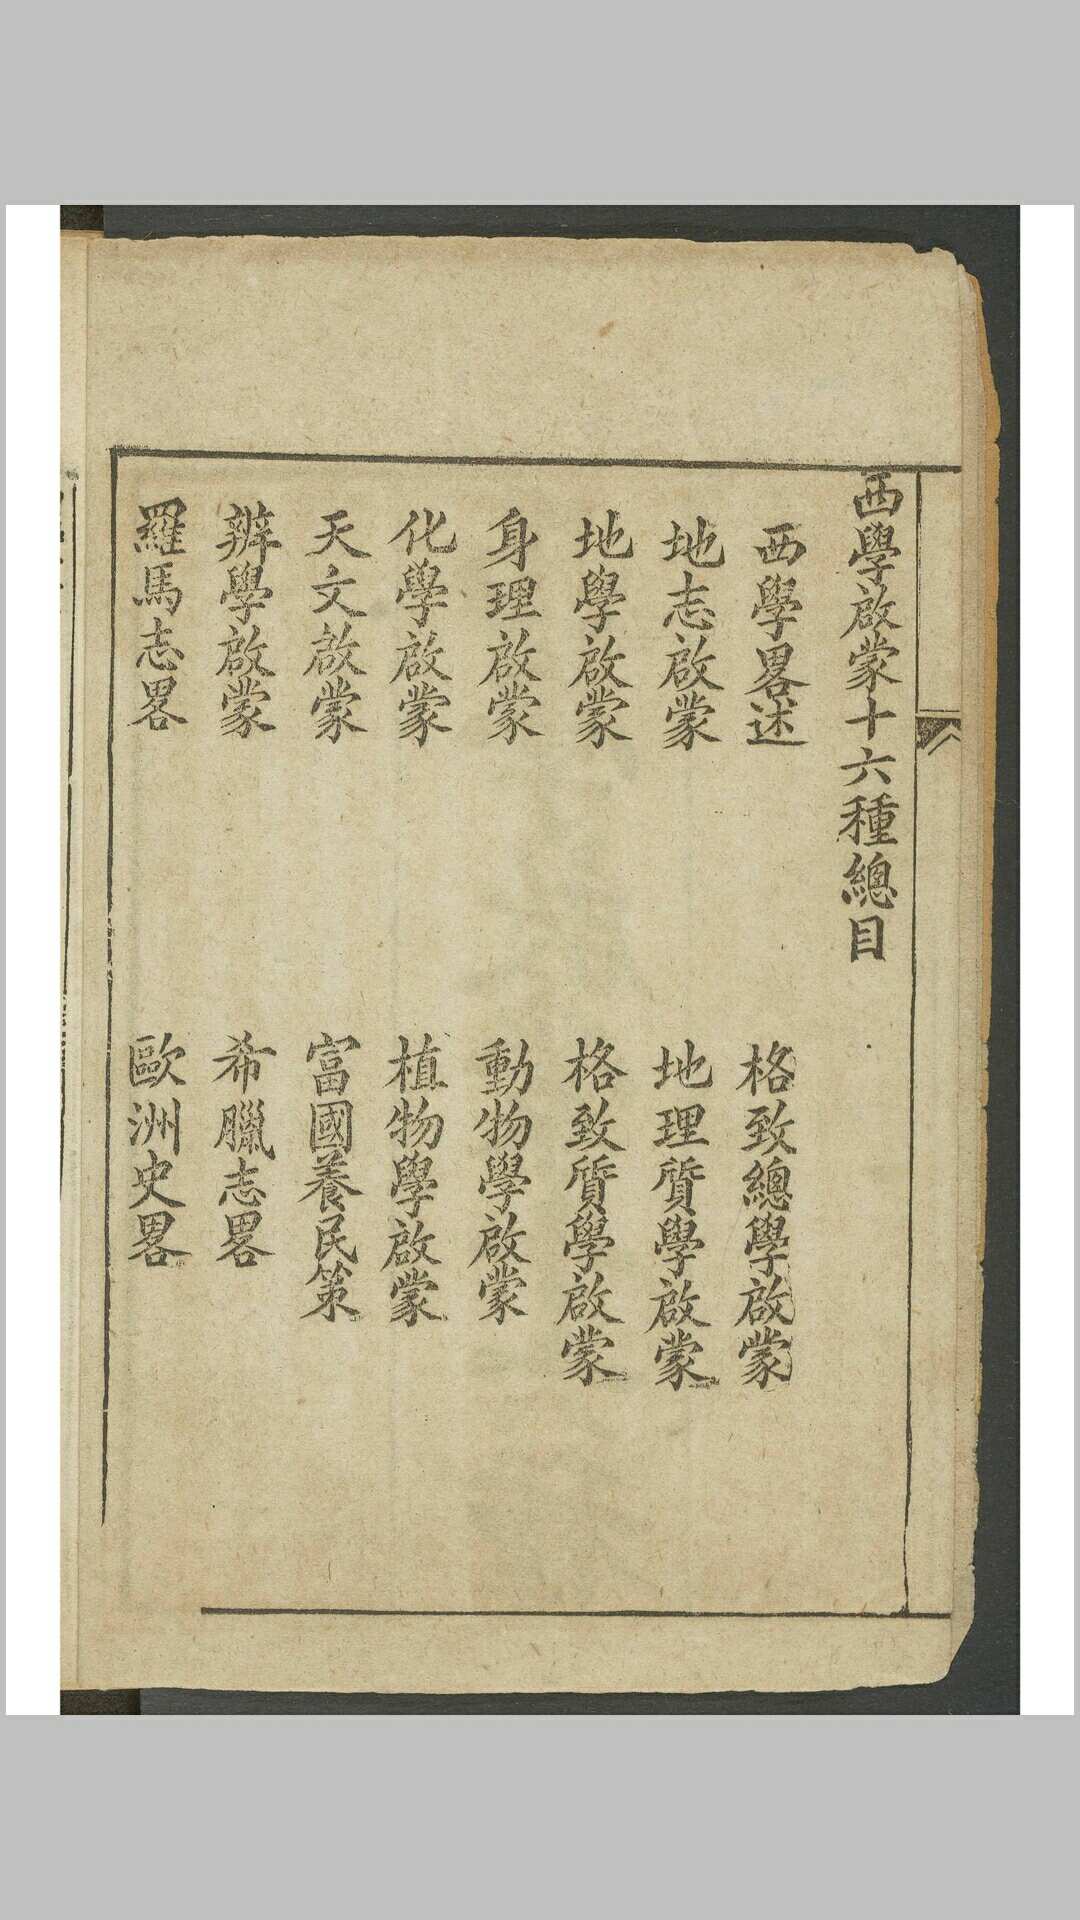 西學啟蒙十六種總目
西學畧述
格致總學啟蒙
地志啟蒙
地理質學啟蒙
地學啟蒙
格致質學啟蒙
身理啟蒙
動物學啟蒙
化學啟蒙
植物學啟蒙
天文啟蒙
富國養民策
辨學啟蒙
希臘志畧
羅馬志畧
歐洲史畧